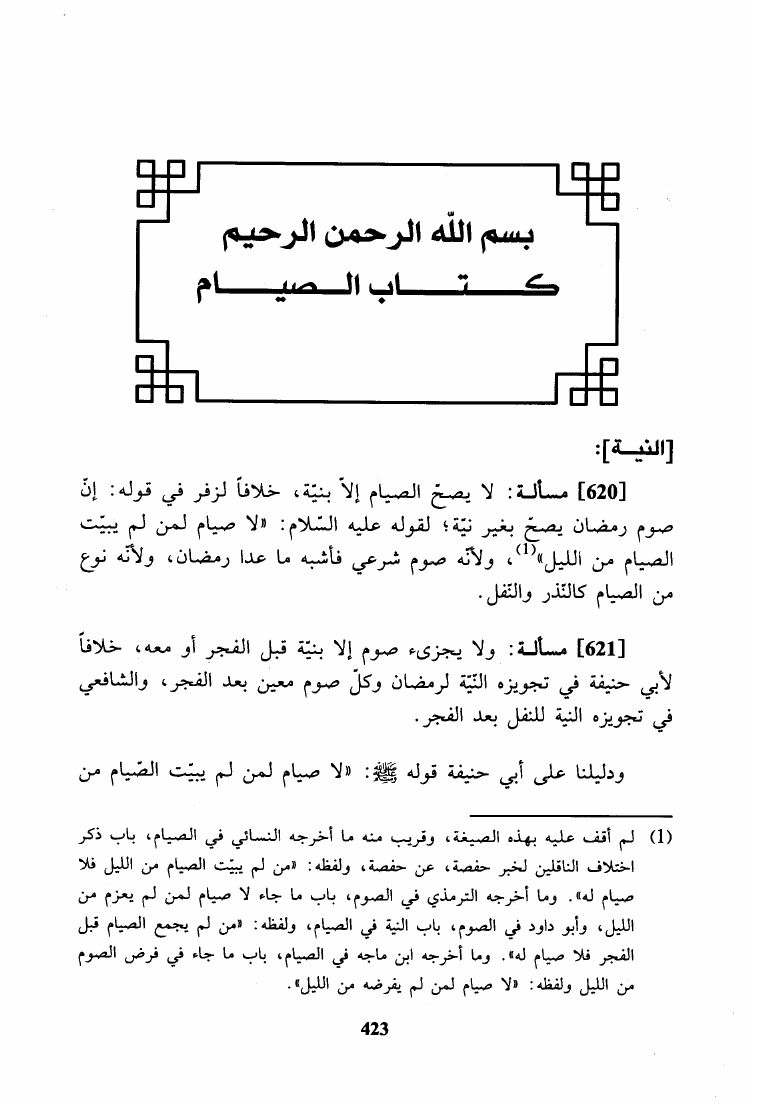 بسم الله الرحمن الرحيم
كتاب الصيام
[النية]:
[620] مسألة: لا يصحّ الصيام إلاّ بنيّة، خلافاً لزفر في قوله: إنّ
صوم رمضان يصحّ بغير نيّة؛ لقوله عليه السّلام: «لا صيام لمن لم يبيّت
الصيام من الليل»(1)، ولأنّه صوم شرعي فأشبه ما عدا رمضان، ولأنّه نوع
من الصيام كالنّذر والنّفل.
[621] مسألة: ولا يجزىء صوم إلا بنيّة قبل الفجر أو معه، خلافاً
لأبي حنيفة في تجويزه النّية لرمضان وكلّ صوم معين بعد الفجر، والشافعي
في تجويزه النية للنفل بعد الفجر.
ودليلنا على أبي حنيفة قوله ﷺ: «لا صيام لمن لم يبيّت الصّيام من
(1) لم أقف عليه بهذه الصيغة، وقريب منه ما أخرجه النسائي في الصيام، باب ذكر
اختلاف الناقلين لخبر حفصة، عن حفصة، ولفظه: «من لم يبيّت الصيام من الليل فلا
صيام له». وما أخرجه الترمذي في الصوم، باب ما جاء لا صيام لمن لم يعزم من
الليل، وأبو داود في الصوم، باب النية في الصيام، ولفظه: «من لم يجمع الصيام قبل
الفجر فلا صيام له». وما أخرجه ابن ماجه في الصيام، باب ما جاء في فرض الصوم
من الليل ولفظه: «لا صيام لمن لم يفرضه من الليل».
423